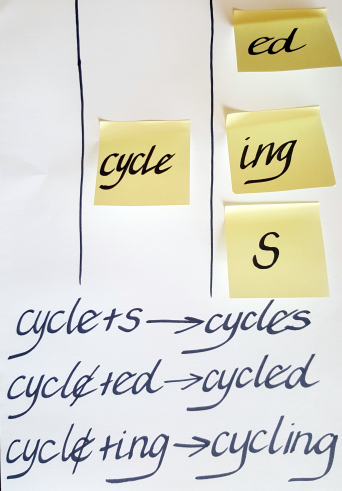 ed
cycle
ing
S
cycle+s→cycles
cycle+ed→cycled
cycle+ing→cycling